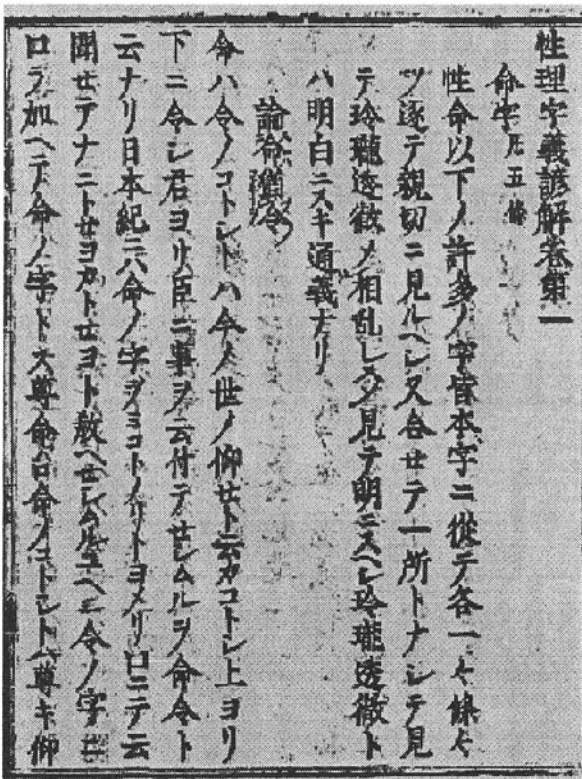 性理字義諺解卷第一
命字 凡五條
性命以下ノ許多ノ字皆本字ニ從テ各一々條々
ヅ逐テ親切ニ見ルヘシ又合セテ一所トナシテ見
テ玲瓏透徹メ相乱レス見テ明ニスヘシ玲瓏透徹ト
ハ明白ニスキ通義ナリ
論命猶令
命ハ令ノコトシトハ今ノ世ノ仰セト云カコトシ上ヨリ
下ニ令シ君ヨリ臣ニ事ヲ云付テセシムルヲ命令ト
云ナリ日本紀ニハ命ノ字ヲミコトノリトヨメリ口ニテ云
聞セテナニトセヨカトセヨト教ヘセシムルユヘニ令ノ字ニ
口ヲ加ヘテ命ノ字トス尊命台命ノコトシトハ尊キ仰